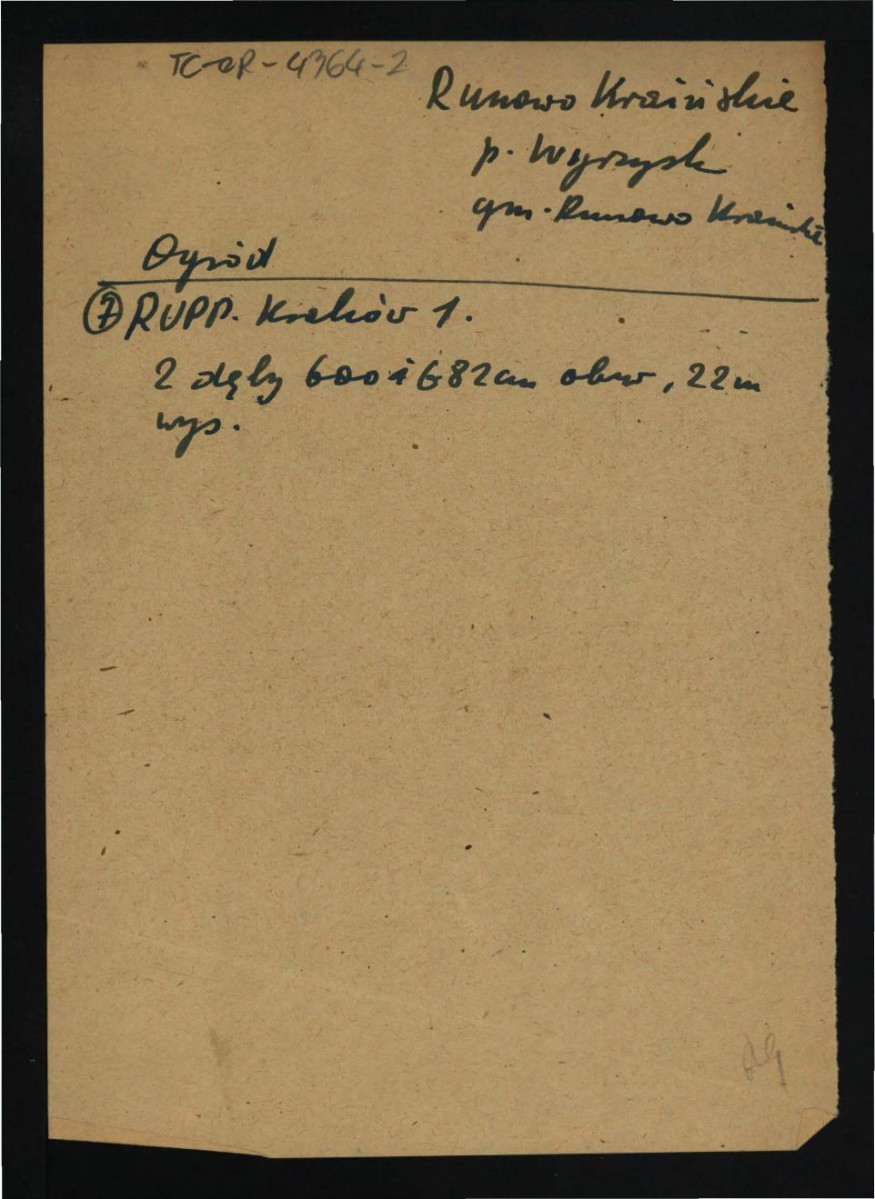 TC-OR-4364-2
Runowo Kraińskie
p. Wyrzysk
gm. Runowo Kraińskie
Ogród
⑦ RUPP. Kraków 1.
2 dęby 600 i 682cm obw, 22m
wys.